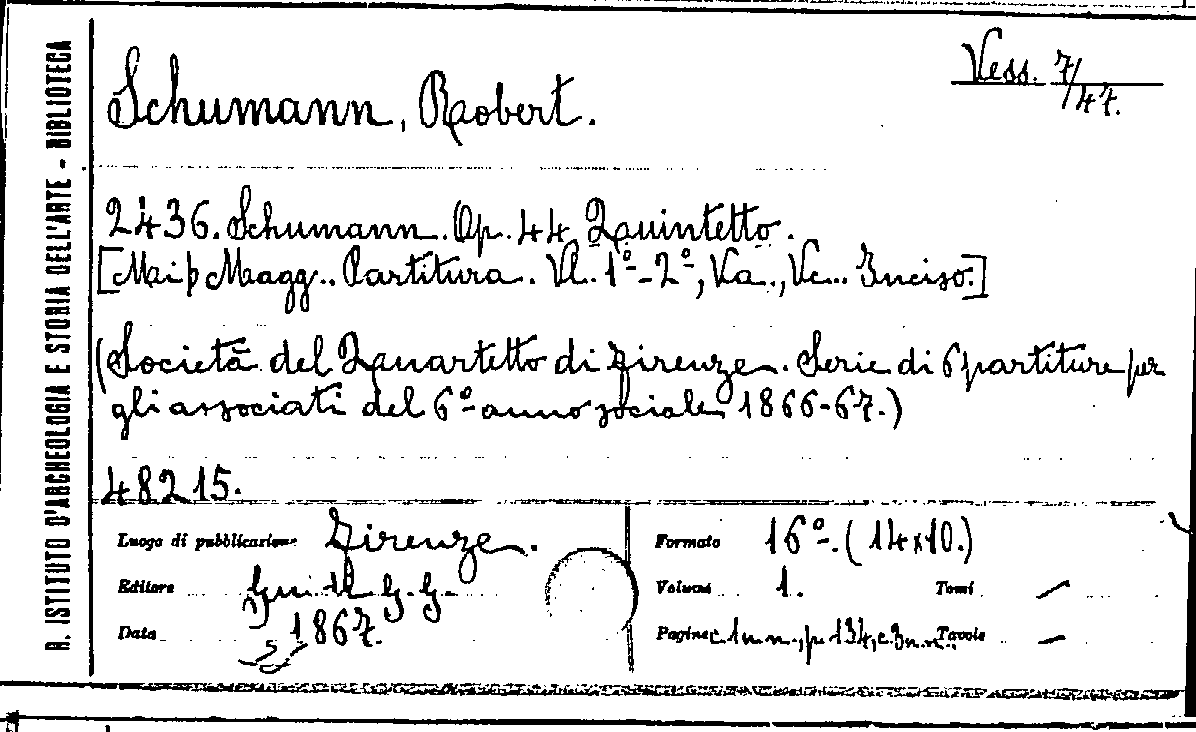 R. ISTITUTO D'ARCHEOLOGIA E STORIA DELL'ARTE - BIBLIOTECA
Vess. 7/47.
Schumann, Robert.
2436. Schumann. Op. 44 Quintetto.
[Mi♭ Magg.. Partitura. Vl. 1º-2º, Va., Vc... Inciso.]
(Società del Quartetto di Firenze. Serie di 6 partiture per
gli associati del 6º anno sociale 1866-67.)
48215.
Luogo di pubblicazione Firenze.
Editore G. G.
Data 1867.
Formato 16º. (14x10.)
Volumi 1. Tomi —
Pagine c. 1 n.n., p. 134, c. 3 n.n. Tavole —